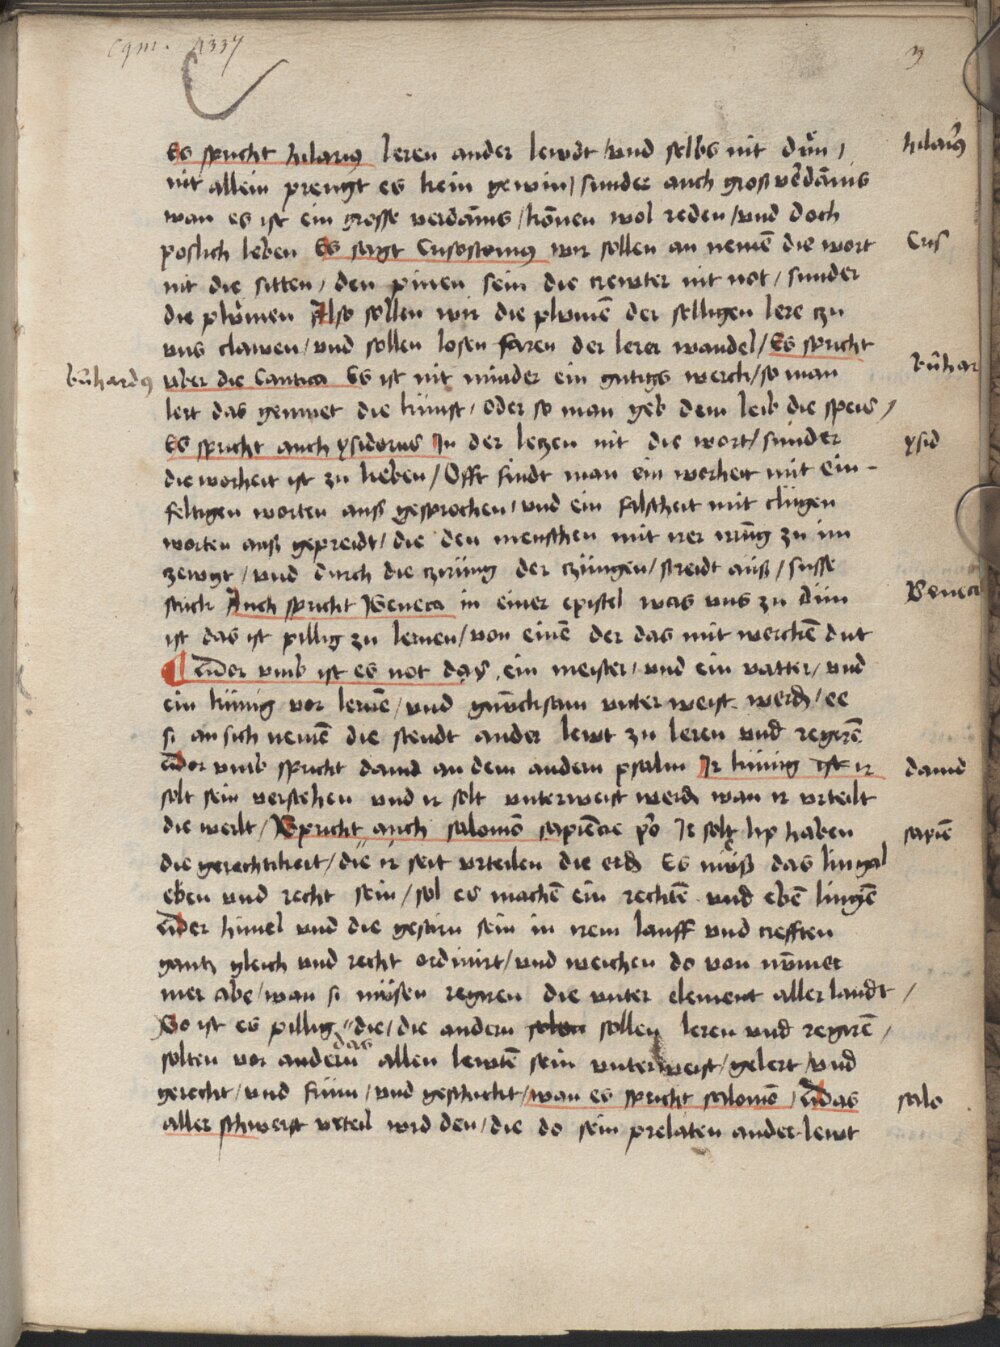 Cgm. 4337
3
Es spricht hilarius leren ander lewdt / und selbs nit dün /
hilariꝰ
nit allein prengt es kein gewin / sunder auch groß v̾dam̄nis
wan es ist ein grosse verdam̄nis / kōnnen wol reden / und doch
poslich leben Es sagt Crisostomus wir sollen an nemē die wort
Cris
nit die sitten / den pinen sein die crewter nit not / sunder
die plümen Also sollen wir die plümē der selligen lere zu
uns clawen / und sollen losen faren der lerer wandel / Es spricht
bn̄har
bn̄hardus
vber die Cantica Es ist nit minder ein gutigs werch / so man
lert das gemuet die künst / oder so man geb dem leib die speis /
Es spricht auch ysidorus In der letzen nit die wort / sunder
ysid
die worheit ist zu lieben / Offt findt man ein worheit mit ein-
feltigen worten auß gesprochen / und ein falscheit mit clügen
worten auß gepreidt / die den menschen mit irer irrūg zu im
zewgt / und durch die zirüng der zungen / streidt auß / susse
strick Auch spricht Seneca in einer epistel was uns zu dün
Seneca
ist das ist pillig zu lernen / von einē der das mit werchē dut
Dor umb ist es not das ein meister / und ein vatter / und
ein künig vor lernē / und gnūchsam unter weist werdn / ee
si an sich nemē die stendt ander lewt zu leren und regirē
Dor umb spricht david an dem andern psalm Ir künig ist ir
david
solt sein verstehen und ir solt unterweist werdn wan ir urteilt
die werlt / Spricht auch salomō sapiencie p̊o Ir solt lip haben
sapiē
die gerechtikeit / die ir seit urteilen die erdn Es müß das lingal
eben und recht sein / sol es machē ein rechtē und ebē lingē
Der himel und die gestirn sein in irem lauff und crefften
gantz gleich und recht ordinirt / und weichen do von nȳmer
mer abe / wan si müsen regiren die unter element aller landt /
So ist es pillig das die / die andern sollen leren und regirē /
solten vor andern allen lewtē sein unterweist / gelert / und
gerecht / und frum / und geschickt / wan es spricht salomō / Das
salo
aller schwerst urteil wird den / die do sein prelaten ander lewt